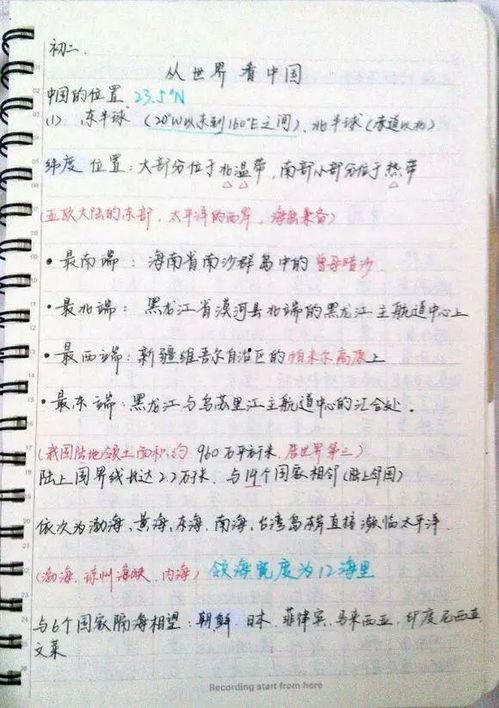 初二.
从世界看中国
中国的位置 23.5°N
(1) 东半球 (20°W以东到160°E之间). 北半球(赤道以北)
纬度位置:大部分位于北温带,南部小部分位于热带
(亚欧大陆的东部,太平洋的西岸,海陆兼备)
•最南端:海南省南沙群岛中的曾母暗沙.
•最北端:黑龙江省漠河县北端的黑龙江主航道中心上
•最西端:新疆维吾尔自治区的帕米尔高原上
•最东端:黑龙江与乌苏里江主航道中心的汇合处.
(我国陆地领土面积约960万平方千米,居世界第三)
陆上国界线长达2.2万千米,与14个国家相邻(陆上邻国)
依次为渤海,黄海,东海,南海,台湾岛 直接濒临太平洋.
(渤海、琼州海峡、内海) 领海宽度为12海里
与6个国家隔海相望:朝鲜 日本、菲律宾、马来西亚、印度尼西亚
文莱
Recording start from here